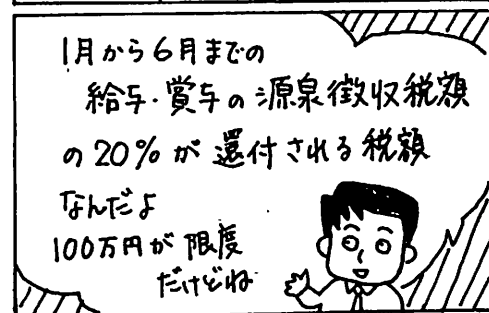 1月から6月までの
給与・賞与の源泉徴収税額
の20%が還付される税額
なんだよ
100万円が限度
だけどね